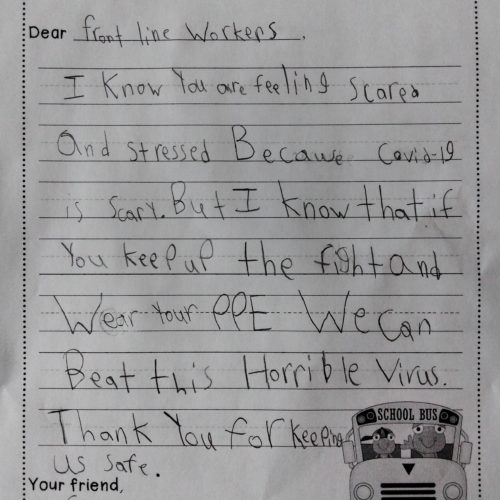 Dear front line Workers.
I Know You are feeling scared
And stressed Because Covid-19
is scary. But I know that if
You keep up the fight and
Wear Your PPE We Can
Beat this Horrible Virus.
Thank You for keeping
us safe.
SCHOOL BUS
Your friend,